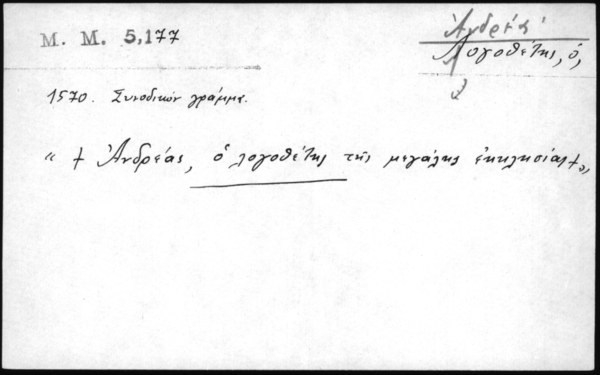 M. M. 5,177
Ἀνδρέας
Λογοθέτης, ὁ,
1570. Συνοδικὸν γράμμα.
« † Ἀνδρέας, ὁ λογοθέτης τῆς μεγάλης ἐκκλησίας † »,